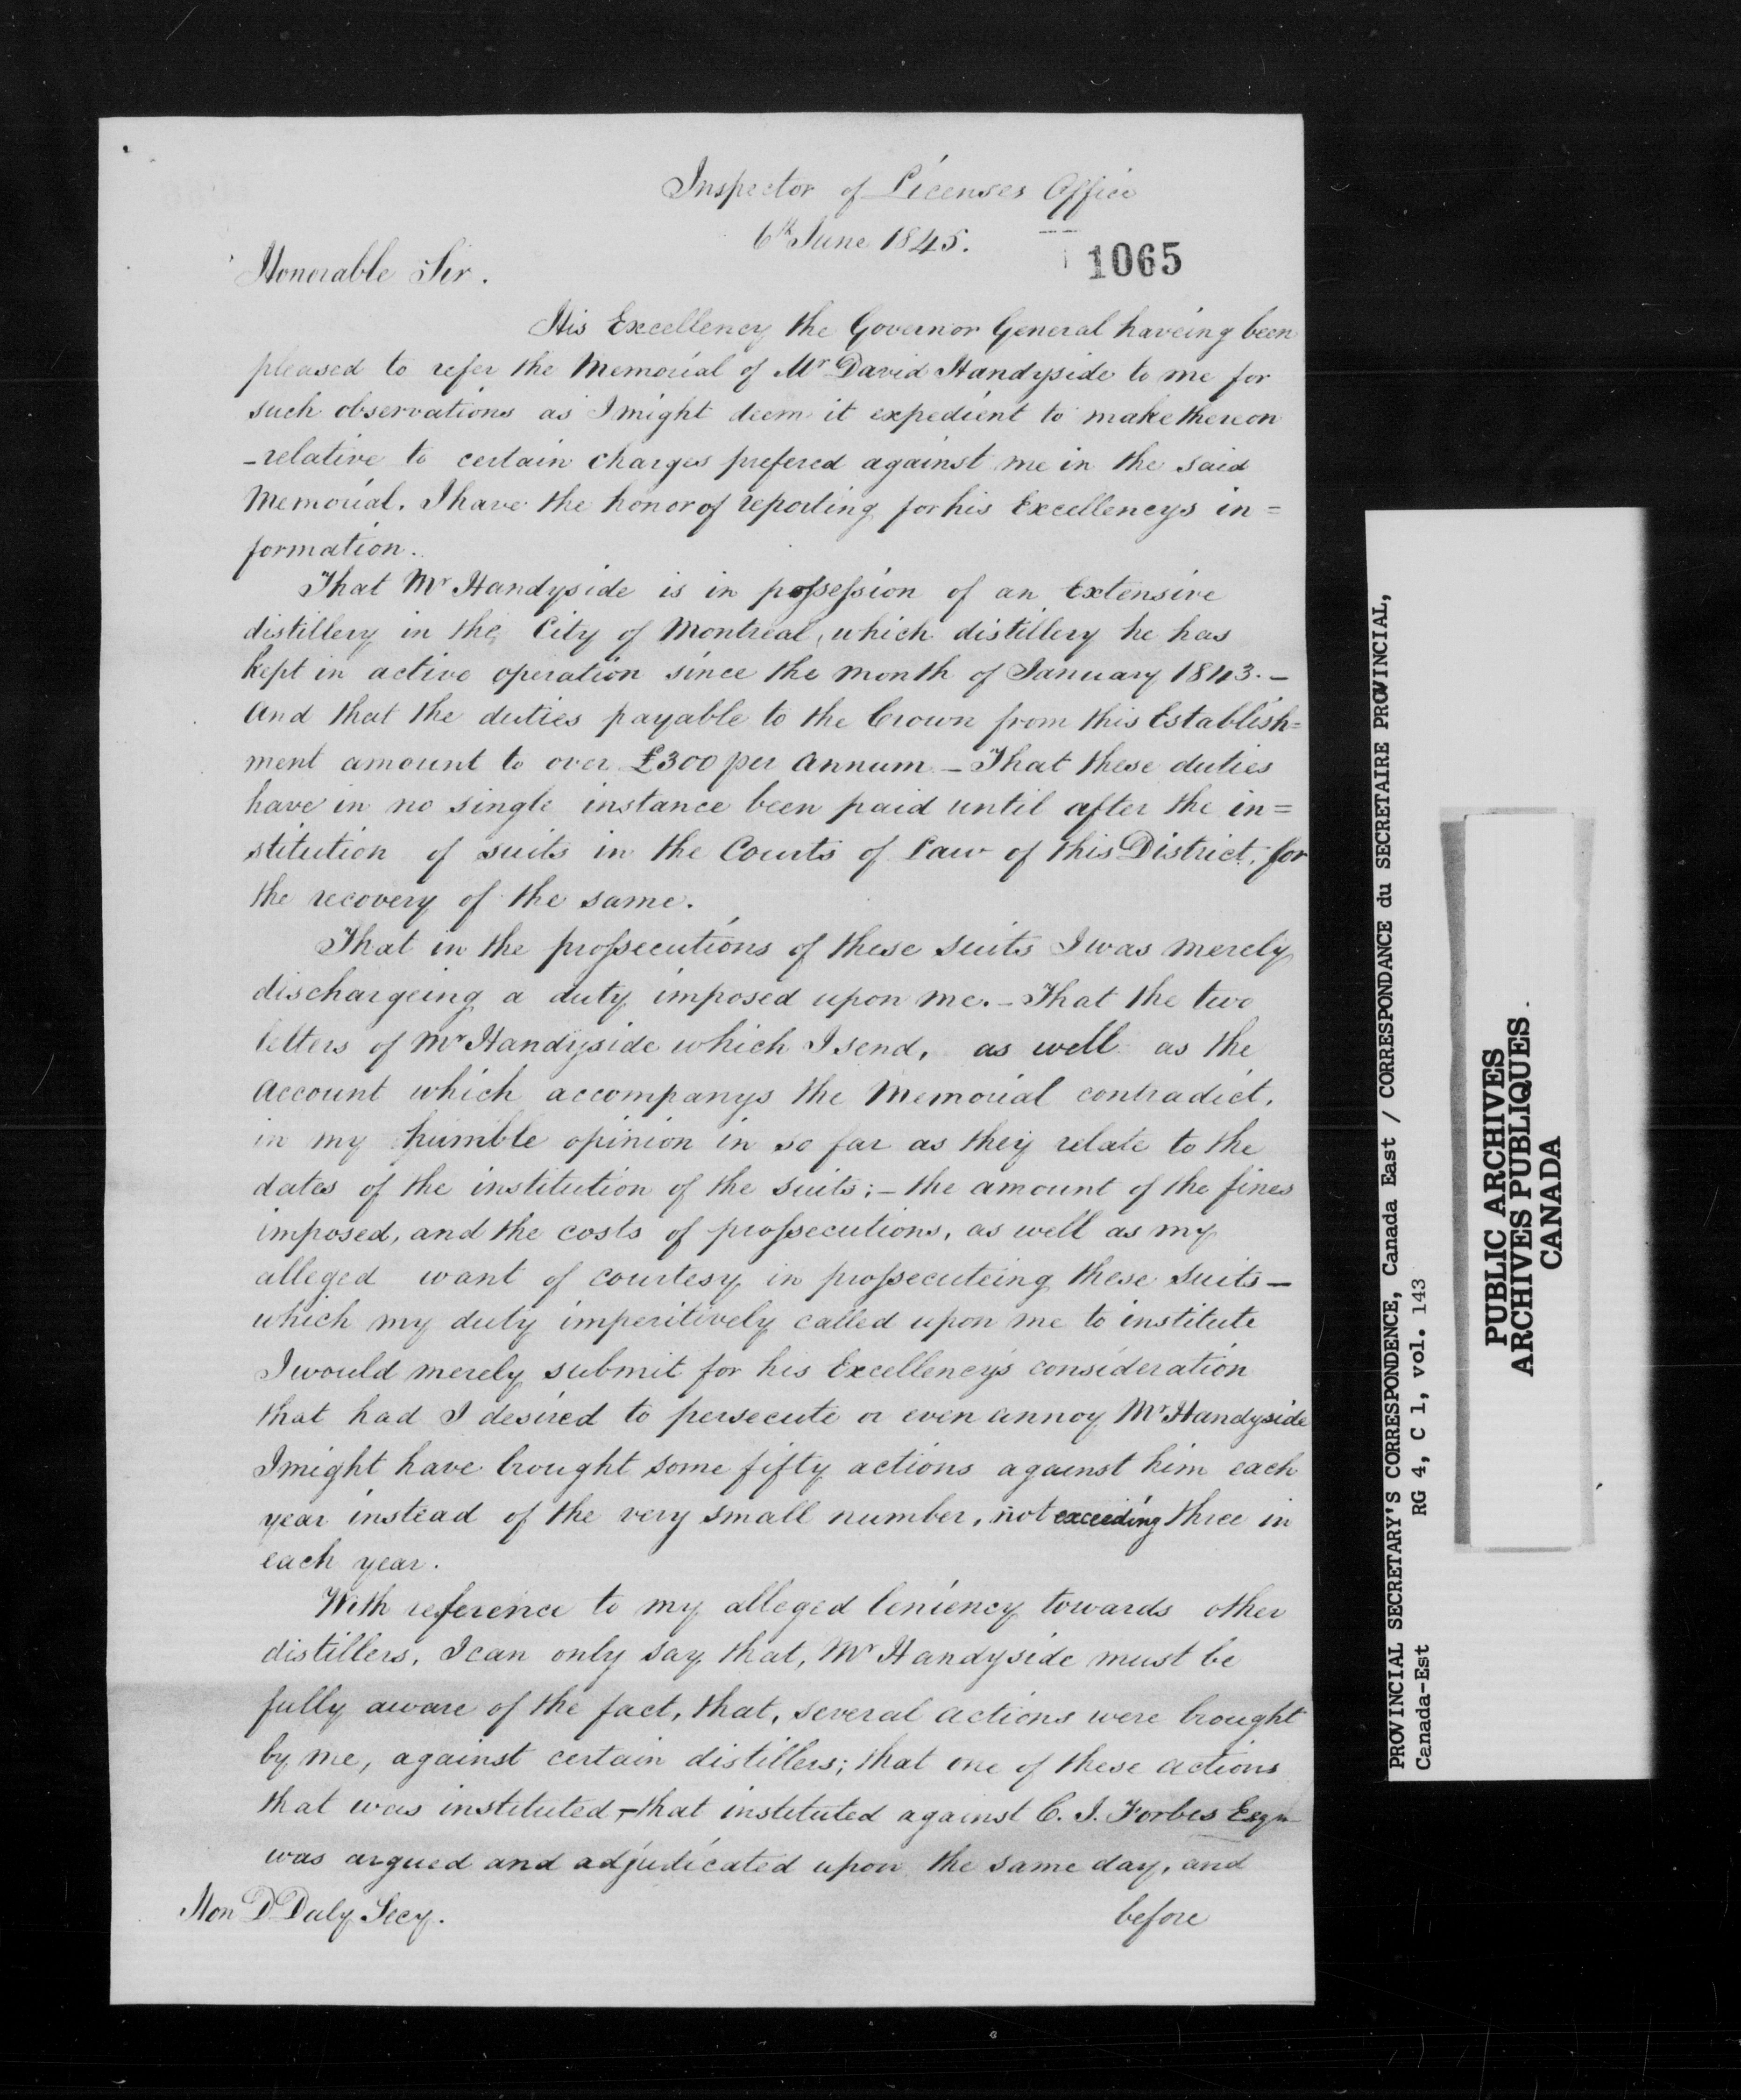 Inspector of Licenses Office
6th June 1845.
1065
Honorable Sir.
His Excellency the Governor General haveing been
pleased to refer the Memorial of Mr David Handyside to me for
such observations as I might deem it expedient to make thereon
-relative to certain charges prefered against me in the said
Memorial. I have the honor of reporting for his Excellencys in=
formation.
That Mr Handyside is in possession of an Extensive
distillery in the City of Montreal, which distillery he has
kept in active operation since the month of January 1843.-
And that the duties payable to the Crown from this Establish=
ment amount to over £300 per Annum - That these duties
have in no single instance been paid until after the in=
stitution of suits in the Courts of Law of this District, for
the recovery of the same.
That in the prossecutions of these suits I was merely
dischargeing a duty imposed upon me. - That the two
letters of Mr Handyside which I send, as well as the
Account which accompanys the Memorial contradict,
in my humble opinion in so far as they relate to the
dates of the institution of the suits; - the amount of the fines
imposed, and the costs of prossecutions, as well as my
alleged want of courtesy in prossecuteing these suits -
which my duty imperitively called upon me to institute
I would merely submit for his Excellency's consideration
that had I desired to persecute or even annoy Mr Handyside
I might have brought some fifty actions against him each
year instead of the very small number, not exceeding three in
each year.
With reference to my alleged leniency towards other
distillers, I can only say that, Mr Handyside must be
fully aware of the fact, that, several actions were brought
by me, against certain distillers; that one of these actions
that was instituted, - that instituted against C. J. Forbes Esqr
was argued and adjudicated upon the same day, and
Hon D Daly Secy.
before
PROVINCIAL SECRETARY'S CORRESPONDENCE, Canada East / CORRESPONDANCE du SECRETAIRE PROVINCIAL,
Canada-Est RG 4, C 1, vol. 143
PUBLIC ARCHIVES
ARCHIVES PUBLIQUES
CANADA